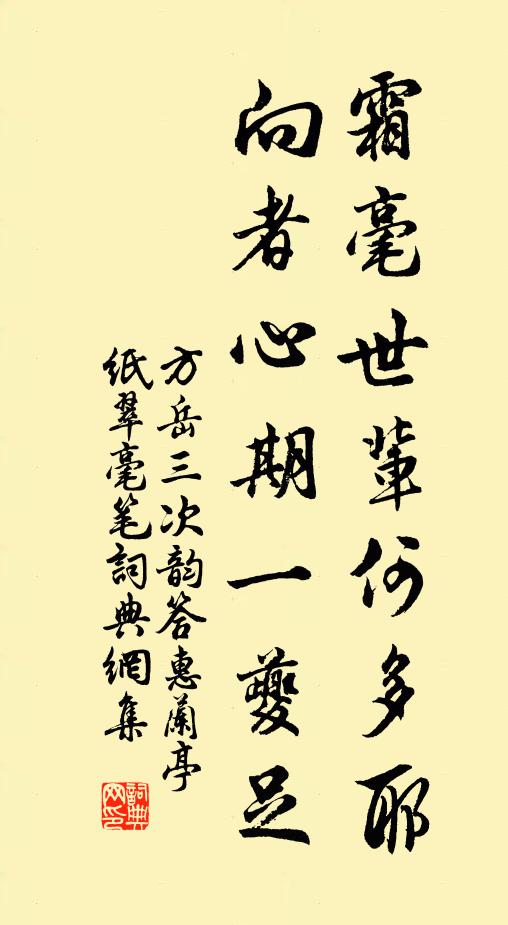 霜毫世辈何多耶
向者心期一夔足
方岳三次韵答惠蘭亭
紙翠毫笔詞典網集
詞典网印